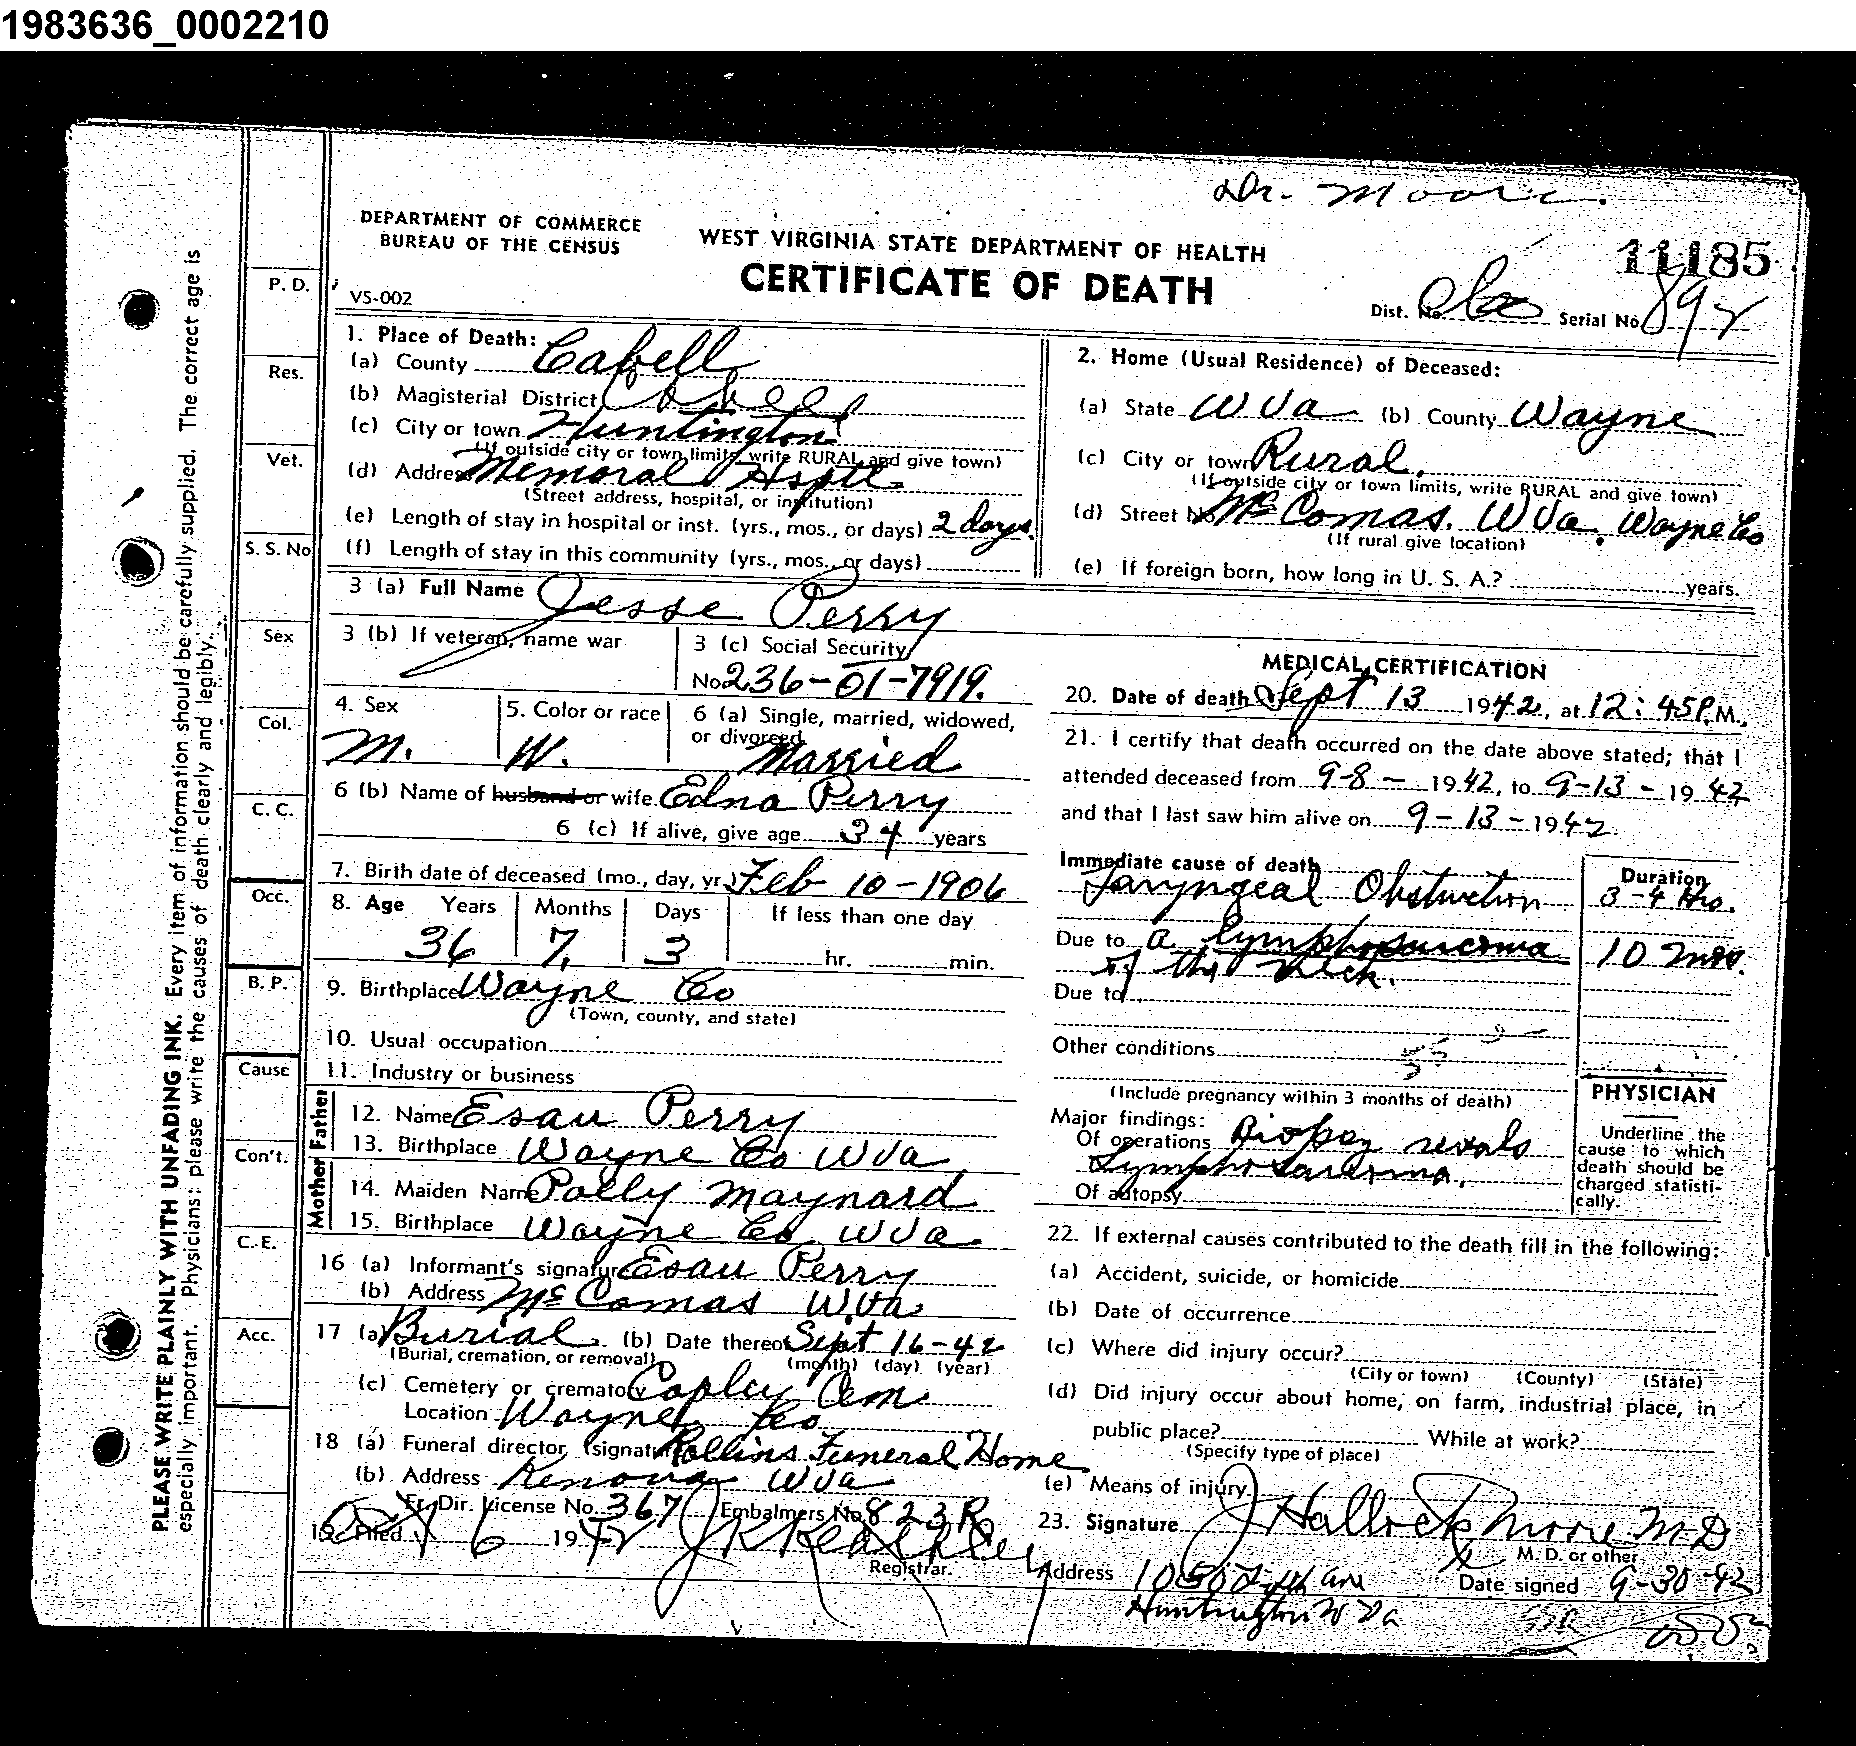 1983636_0002210
Dr. Moore.
DEPARTMENT OF COMMERCE
BUREAU OF THE CENSUS
WEST VIRGINIA STATE DEPARTMENT OF HEALTH
CERTIFICATE OF DEATH
11185
VS-002
Dist. No. Serial No. 892
PLEASE WRITE PLAINLY WITH UNFADING INK. Every item of information should be carefully supplied. The correct age is
especially important. Physicians: please write the causes of death clearly and legibly.
P. D.
Res.
Vet.
S. S. No
Sex
Col.
C. C.
Occ.
B. P.
Cause
Con't.
C. E.
Acc.
1. Place of Death:
(a) County Cabell
(b) Magisterial District
(c) City or town Huntington
(If outside city or town limits, write RURAL and give town)
(d) Address Memoral Hsptl
(Street address, hospital, or institution)
(e) Length of stay in hospital or inst. (yrs., mos., or days) 2 days.
(f) Length of stay in this community (yrs., mos., or days)
2. Home (Usual Residence) of Deceased:
(a) State W Va (b) County Wayne
(c) City or town Rural.
(If outside city or town limits, write RURAL and give town)
(d) Street No. McComas. W Va. Wayne Co
(If rural give location)
(e) If foreign born, how long in U. S. A.? years.
3 (a) Full Name Jesse Perry
3 (b) If veteran, name war
3 (c) Social Security
No 236-01-7919.
4. Sex
M.
5. Color or race
W.
6 (a) Single, married, widowed,
or divorced
Married
6 (b) Name of husband or wife Edna Perry
6 (c) If alive, give age 34 years
7. Birth date of deceased (mo., day, yr.) Feb 10-1906
8. Age Years Months Days If less than one day
36 7, 3 hr. min.
9. Birthplace Wayne Co
(Town, county, and state)
10. Usual occupation
11. Industry or business
Father
12. Name Esau Perry
13. Birthplace Wayne Co W Va
Mother
14. Maiden Name Polly Maynard
15. Birthplace Wayne Co. W Va
16 (a) Informant's signature Esau Perry
(b) Address McComas W. Va
17 (a) Burial (b) Date thereof Sept 16-42
(Burial, cremation, or removal) (month) (day) (year)
(c) Cemetery or crematory Copley Cem
Location Wayne Co
18 (a) Funeral director, (signature) Rollins Funeral Home
(b) Address Kenova W Va
Fr. Dir. License No. 367 Embalmers No. 823R
19. Filed Oct 6 1942
Registrar.
MEDICAL CERTIFICATION
20. Date of death Sept 13 1942, at 12:45 P.M.
21. I certify that death occurred on the date above stated; that I
attended deceased from 9-8- 1942, to 9-13-1942
and that I last saw him alive on 9-13-1942
Immediate cause of death
Laryngeal Obstruction
Duration
3-4 Hrs.
Due to a lymphosarcoma 10 mos.
of the neck.
Due to
Other conditions
(Include pregnancy within 3 months of death)
Major findings:
Of operations Biopsy reveals
Lymphosarcoma.
Of autopsy
PHYSICIAN
Underline the
cause to which
death should be
charged statisti-
cally.
22. If external causes contributed to the death fill in the following:
(a) Accident, suicide, or homicide
(b) Date of occurrence
(c) Where did injury occur?
(City or town) (County) (State)
(d) Did injury occur about home, on farm, industrial place, in
public place? While at work?
(Specify type of place)
(e) Means of injury
23. Signature J Hallock Moore M D
M. D. or other
Address 1050 Date signed 9-30-42
Huntington W Va